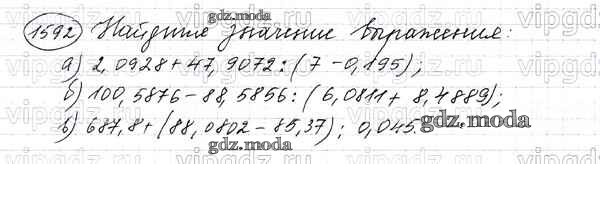 gdz.moda
1592 Найдите значение выражения:
а) 2,0928+47,9072:(7-0,195);
gdz.moda
б) 100,5876-88,5856:(6,0811+8,4889);
в) 687,8+(88,0802-85,37):0,045.
gdz.moda
gdz.moda
vipgdz
vipgdz
vipgdz
vipgdz